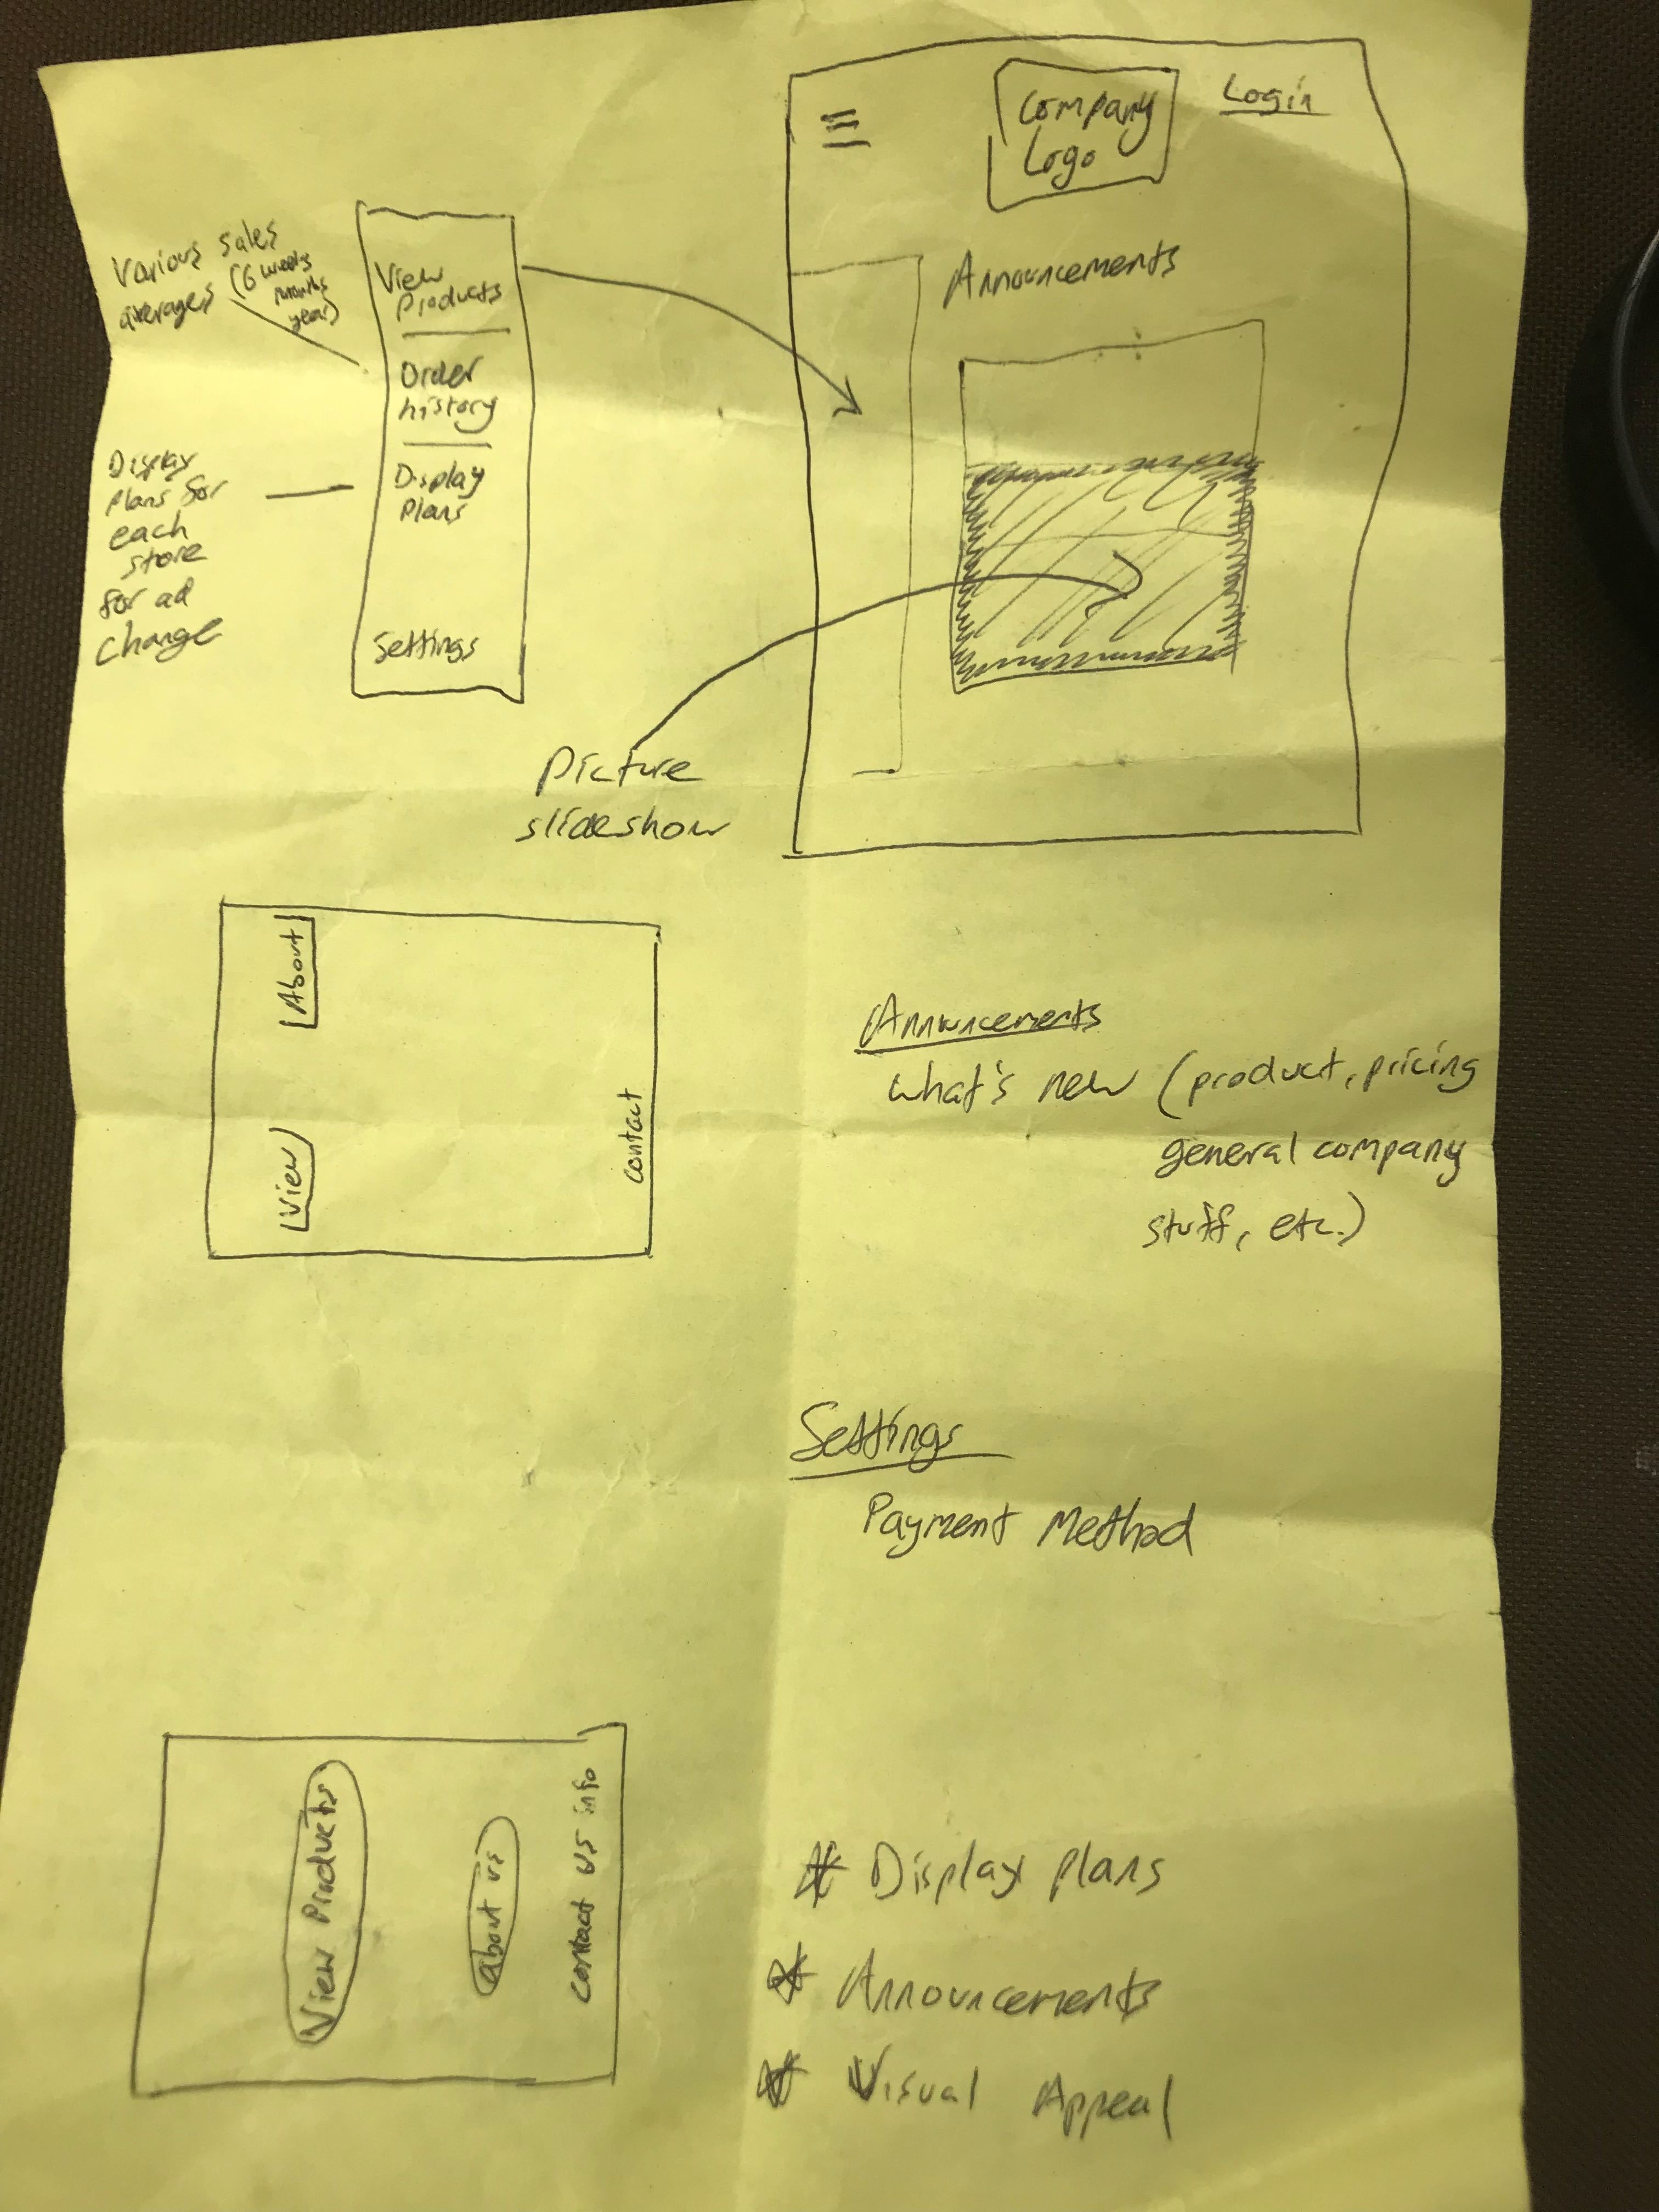 Company
Logo
Login
Announcements
Various sales
averages (6 weeks
months
year)
View
Products
Order
history
Display
Plans
Settings
Display
Plans for
each
store
for ad
change
Picture
slideshow
About
View
contact
Annuncements
what's new (product, pricing
general company
stuff, etc.)
Settings
Payment Method
View Products
about us
contact us info
* Display plans
* Announcements
* Visual Appeal